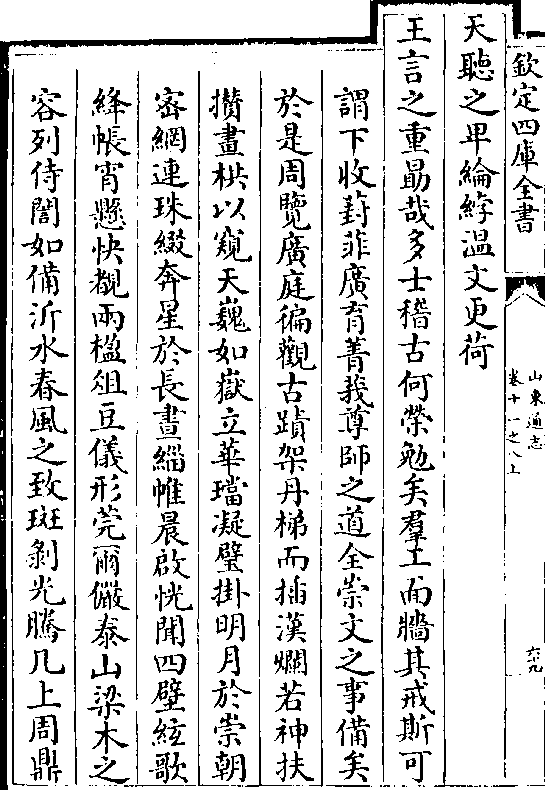 欽定四庫全書
山東通志
卷十一之八上
六九
天聽之卑綸綍溫文更荷
王言之重勗哉多士稽古何榮勉矣羣工面牆其戒斯可
謂下收葑菲廣育菁莪尊師之道全崇文之事備矣
於是周覽廣庭徧觀古蹟架丹梯而插漢爛若神扶
攅畫栱以窺天巍如嶽立華璫凝璧掛明月於崇朝
宻網連珠綴奔星於長晝緇帷晨啟恍聞四壁絃歌
絳帳宵懸快覩兩楹俎豆儀形莞爾儼泰山梁木之
容列侍誾如備沂水春風之致斑剝光騰几上周鼎